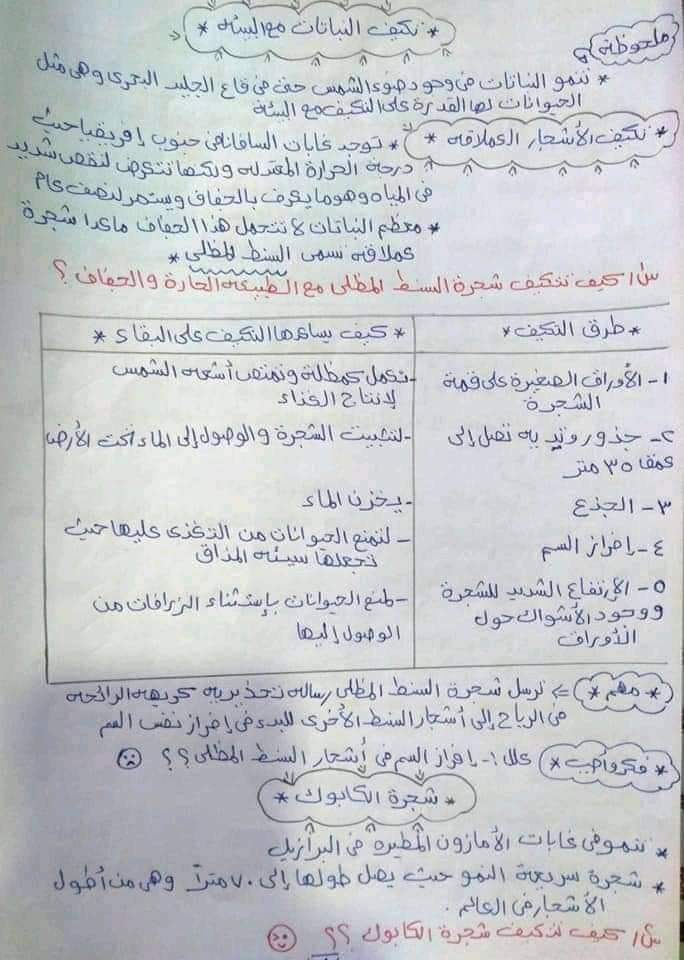 * تكيف النباتات مع البيئه *
ملحوظة
* تنمو النباتات فى وجود ضوء الشمس حتى فى قاع الجليد البحرى وهى مثل
الحيوانات لها القدرة على التكيف مع البيئة
* تكيف الأشجار العملاقه *
* توجد غابات السافانا فى جنوب إفريقيا حيث
درجة الحرارة المعتدله ولكنها تتعرض لنقص شديد
فى المياه وهو ما يعرف بالجفاف ويستمر لنصف عام
* معظم النباتات لا تتحمل هذا الجفاف ماعدا شجرة
عملاقه تسمى السنط المظلى *
س١/ كيف تتكيف شجرة السنط المظلى مع الطبيعه الحارة والجفاف ؟
* طرق التكيف *
* كيف يساعدها التكيف على البقاء *
١- الأوراق الصغيرة على قمة
الشجرة
- تعمل كمظلة وتمتص أشعه الشمس
لإنتاج الغذاء
٢- جذور وتديه تصل إلى
عمق ٣٥ متر
- لتثبيت الشجرة والوصول إلى الماء تحت الأرض
٣- الجذع
- يخزن الماء
٤- إفراز السم
- لتمنع الحيوانات من التغذى عليها حيث
تجعلها سيئه المذاق
٥- الارتفاع الشديد للشجرة
ووجود الأشواك حول
الأوراق
- لمنع الحيوانات بإستثناء الزرافات من
الوصول إليها
* مهم * <= ترسل شجرة السنط المظلى رساله تحذيريه كريهه الرائحه
فى الرياح إلى أشجار السنط الأخرى للبدء فى إفراز نفس السم
* فكر وأجب * علل ١- إفراز السم فى أشجار السنط المظلى ؟؟
* شجرة الكابوك *
* تنمو فى غابات الأمازون المطيرة فى البرازيل
* شجرة سريعة النمو حيث يصل طولها إلى ٧٠ متراً وهى من أطول
الأشجار فى العالم .
س١/ كيف تتكيف شجرة الكابوك ؟؟